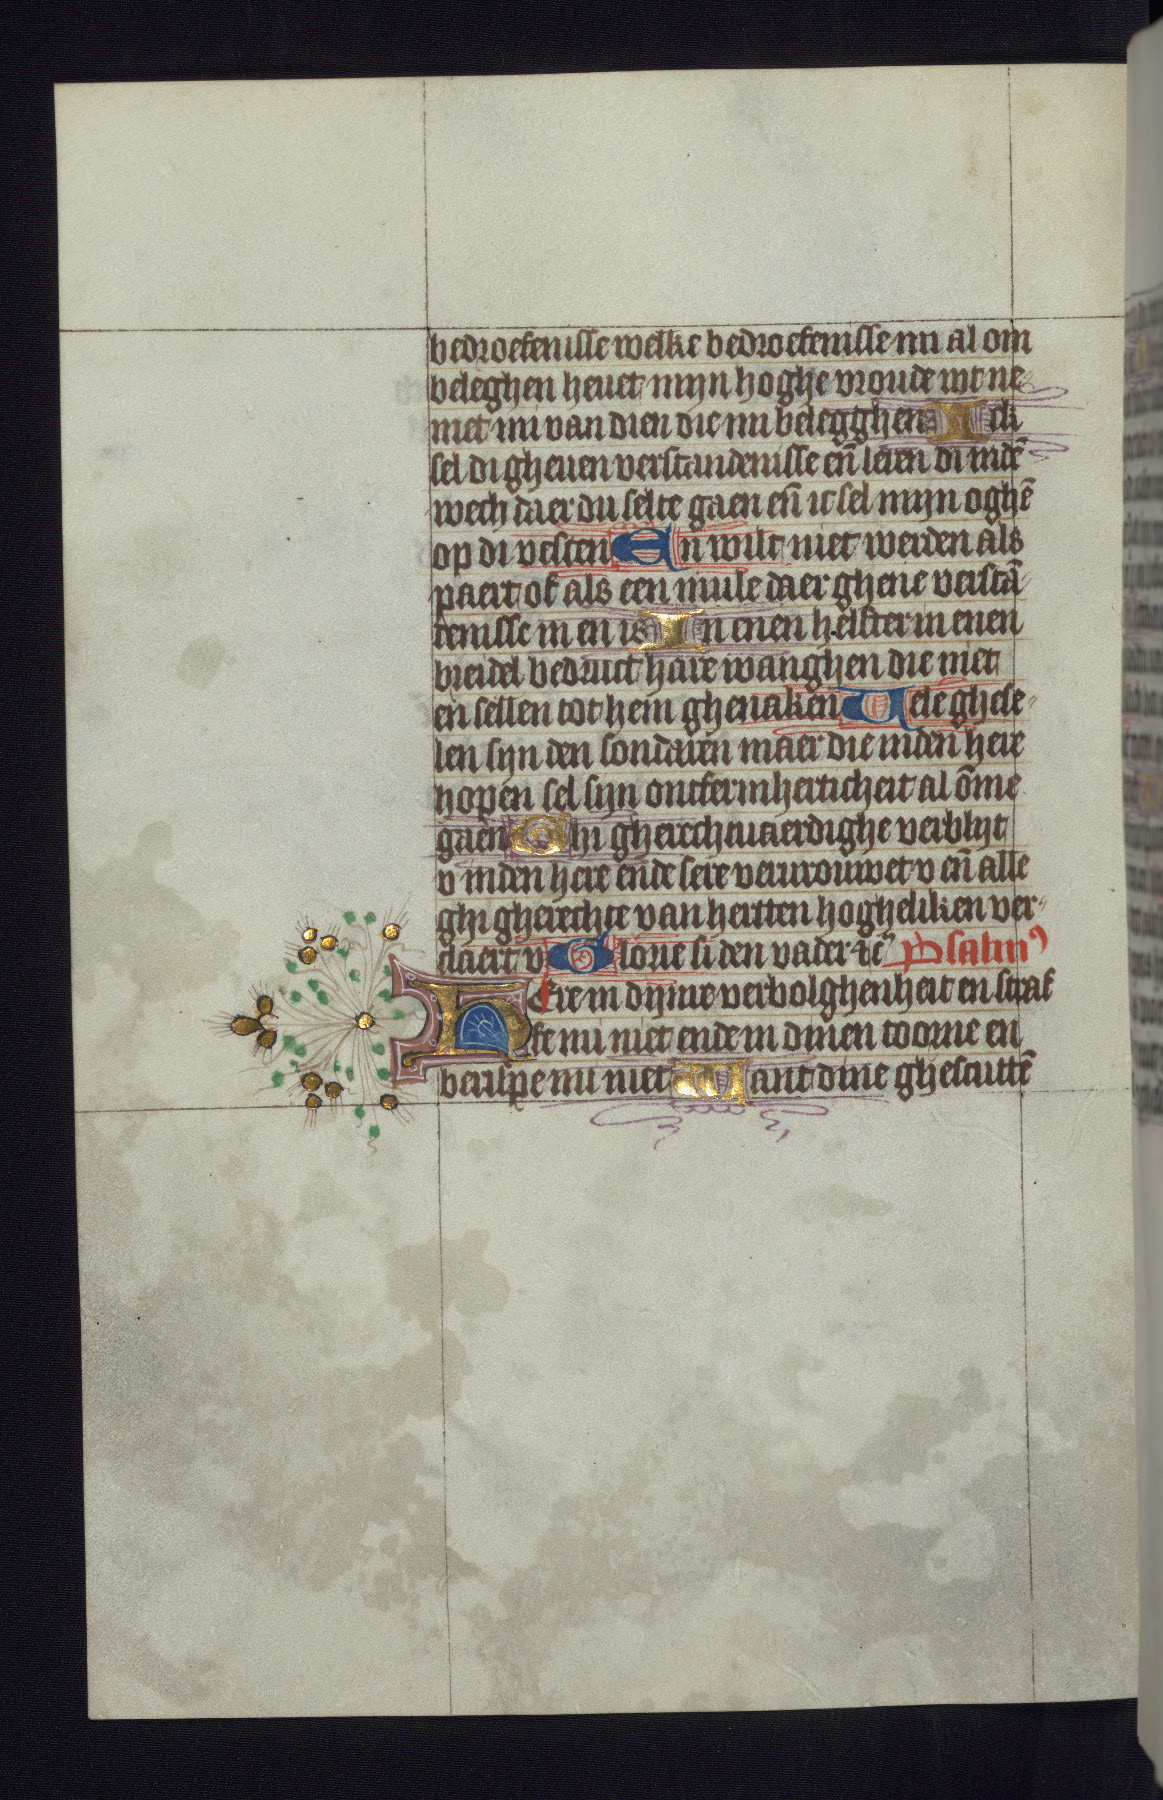 bedroefenisse welke bedroefenisse mi al om
beleghen heuet mijn hoghe vroude wt ne-
met mi van dien die mi belegghen Ick
sel di gheuen verstandenisse en̄ leren di indē
wech daer du selte gaen en̄ ic sel mijn oghē
op di vesten En wilt niet werden als
paert of als een mule daer ghene verstā-
denisse in en is In enen helfter in enen
breidel bedruct hare wanghen die niet
en sellen tot hem ghenaken Uele ghese-
len sijn den sondaren maer die inden here
hopen sel sijn ontfermherticheit al ōme
gaen Ghi gherechtuaerdighe verblijt
v inden here ende sere vervrouwet v en̄ alle
ghi gherechte van hertten hogheliken ver-
claert v Glorie si den vader ⁊c̄ Psalmꝰ
Here in dijnre verbolghenheit en straf
fe mi niet ende in dinen toorne en
berispe mi niet Want dine ghescuttē